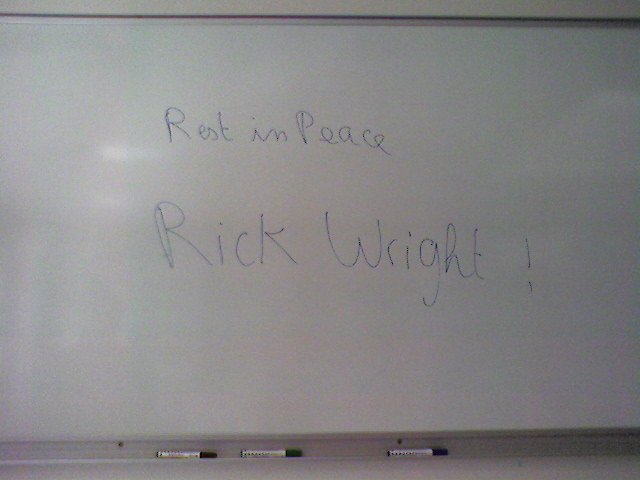 Rest in Peace
Rick Wright !